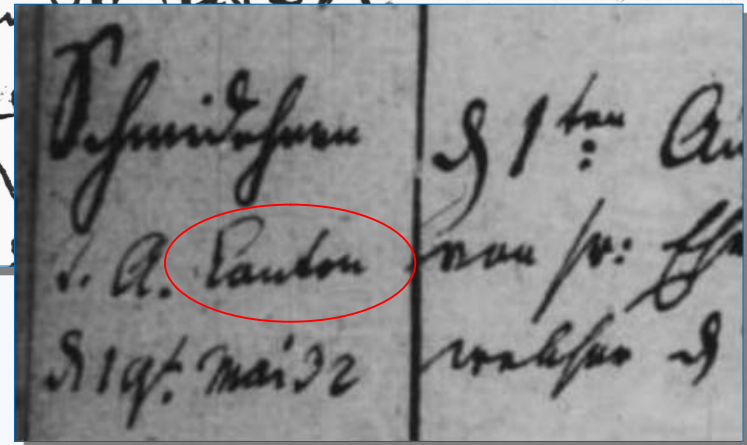 Schmidehnen
d. A. Canton
d 19t. Mai 32
d 1ten Au
von sr: Ehe
welcher d